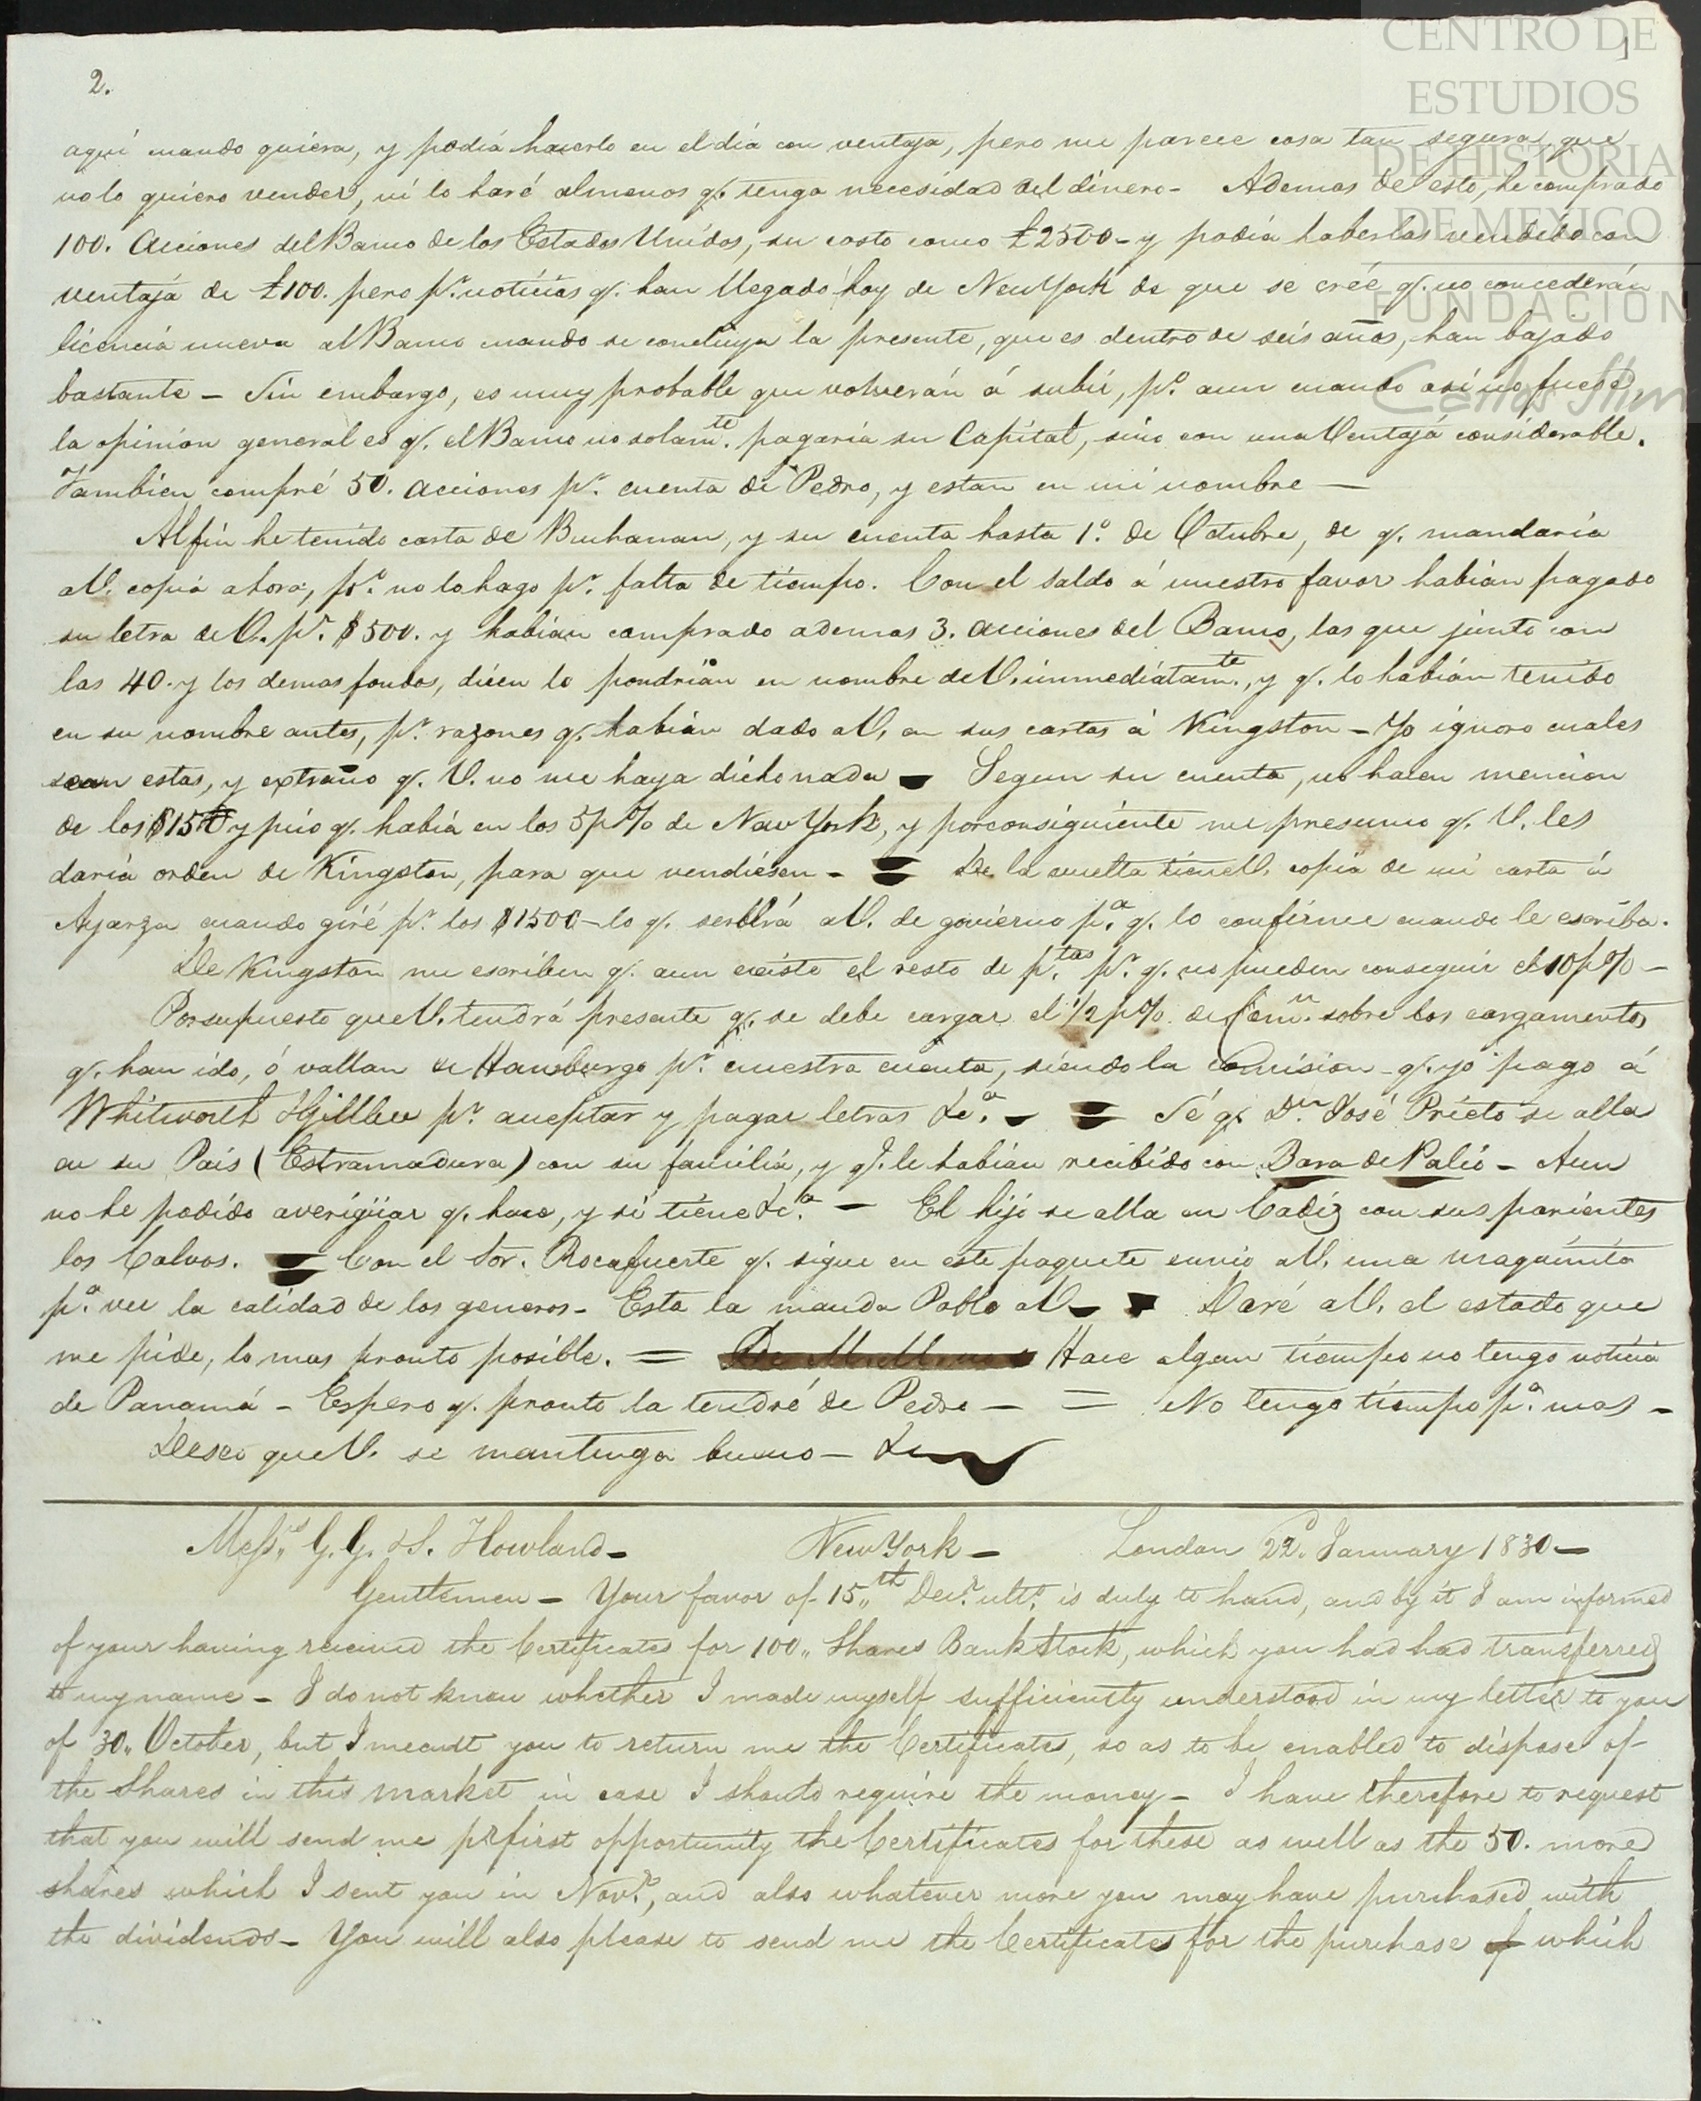 CENTRO DE
ESTUDIOS
DE HISTORIA
DE MÉXICO
FUNDACIÓN
Carlos Slim
2.
aquí cuando quiera, y podiá hacerlo en el día con ventaja, pero me parece cosa tan segura, que
no lo quiero vender, ni lo haré almenos q. tenga necesidad del dinero - Ademas de esto, he comprado
100. Acciones del Banco de los Estados Unidos, su costo como £2500 - y podiá haberlas vendido con
ventajá de £100. pero pr. notíciás q. han llegado hoy de New York de que se créé q. no concederán
licenciá nueva al Banco cuando se concluya la presente, que es dentro de seis años, han bajado
bastante - Sin embargo, es muy probable que volverán á subir, po. aun cuando asi no fuese,
la opinion general es q. el Banco no solamte. pagaria su Capital, sino con una Ventajá considerable.
Tambien compré 50. acciones pr. cuenta de Pedro, y estan en mi nombre —
Alfin he tenido carta de Buchanan, y su cuenta hasta 1o. de Octubre, de q. mandaria
a V. copiá ahora, po. no lo hago pr. falta de tiempo. Con el saldo á nuestro favor habián pagado
su letra de V. pr. $500. y habián comprado ademas 3. acciones del Banco, las que junto con
las 40. y los demas fondos, dicen lo pondrián en nombre de V. immediátamte., y q. lo habián tenido
en su nombre antes, pr. razones q. habián dado a V. en sus cartas á Kingston - Yo ignoro cuales
sean estas, y extraño q. V. no me haya dicho nada - Segun su cuenta, no hacen mencion
de los $15 y pico q. habiá en los 5 p% de New York, y porconsiguiente me presumo q. V. les
dariá orden de Kingston, para que vendiésen - = De la vuelta tiene V. copiá de mi carta á
Ayarza cuando giré pr. los $1500 - lo q. servirá a V. de govierno pa. q. lo confirme cuando le escriba.
De Kingston me escriben q. aun existe el resto de p.tas pr. q. no pueden conseguir el 10 p% -
Porsupuesto que V. tendrá presente q. se debe cargar el 1/2 p% de Comn. sobre los cargamentos
q. han ido, ó vallan de Hamburgo pr. nuestra cuenta, siendo la Comision q. yo pago á
Whitworth pr. aceptar y pagar letras &ca. - = Sé q. Dn. José Prieto se alla
en su Pais (Estramadura) con su familiá, y q. le habián recibido con Bara de Palio - Aun
no he podido averigüar q. hace, y si tiene &c.a - El hijo se alla en Cadiz con sus pariéntes
los Calvos. = Con el Sor. Rocafuerte q. sigue en este paquete envio a V. una maquinita
pa. ver la calidad de los generos - Esta la manda Pablo a V - Daré a V. el estado que
me pide, lo mas pronto posible. = Hace algun tiempo no tengo noticiá
de Panamá - Espero q. pronto la tendré de Pedro - = No tengo tiempo pa. mas -
Deseo que V. se mantenga bueno - &c
Messrs. G. G. & S. Howland - New York - London 22d. January 1830 -
Gentlemen - Your favor of 15,,th Decr. ulto. is duly to hand, and by it I am informed
of your having received the Certificates for 100,, Shares Bank Stock, which you had had transferred
to my name - I do not know whether I made myself sufficiently understood in my letter to you
of 30,, October, but I meant you to return me the Certificates, so as to be enabled to dispose of
the Shares in this market in case I should require the money - I have therefore to request
that you will send me pr first opportunity the Certificates for these as well as the 50. more
shares which I sent you in Novr., and also whatever more you may have purchased with
the dividends - You will also please to send me the Certificates for the purchase of which